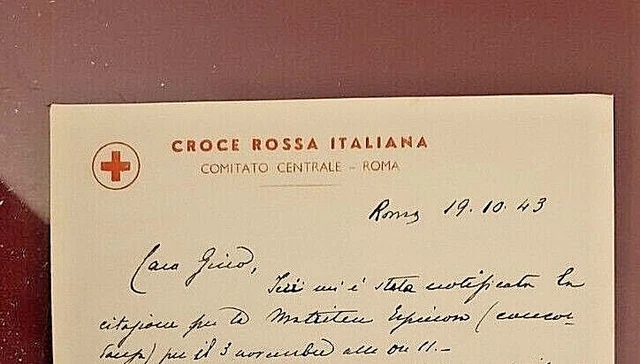 CROCE ROSSA ITALIANA
COMITATO CENTRALE - ROMA
Roma 19.10.43
Caro
Ieri mi è stata notificata la
citazione per la
per il 3 novembre alle ore 11.-